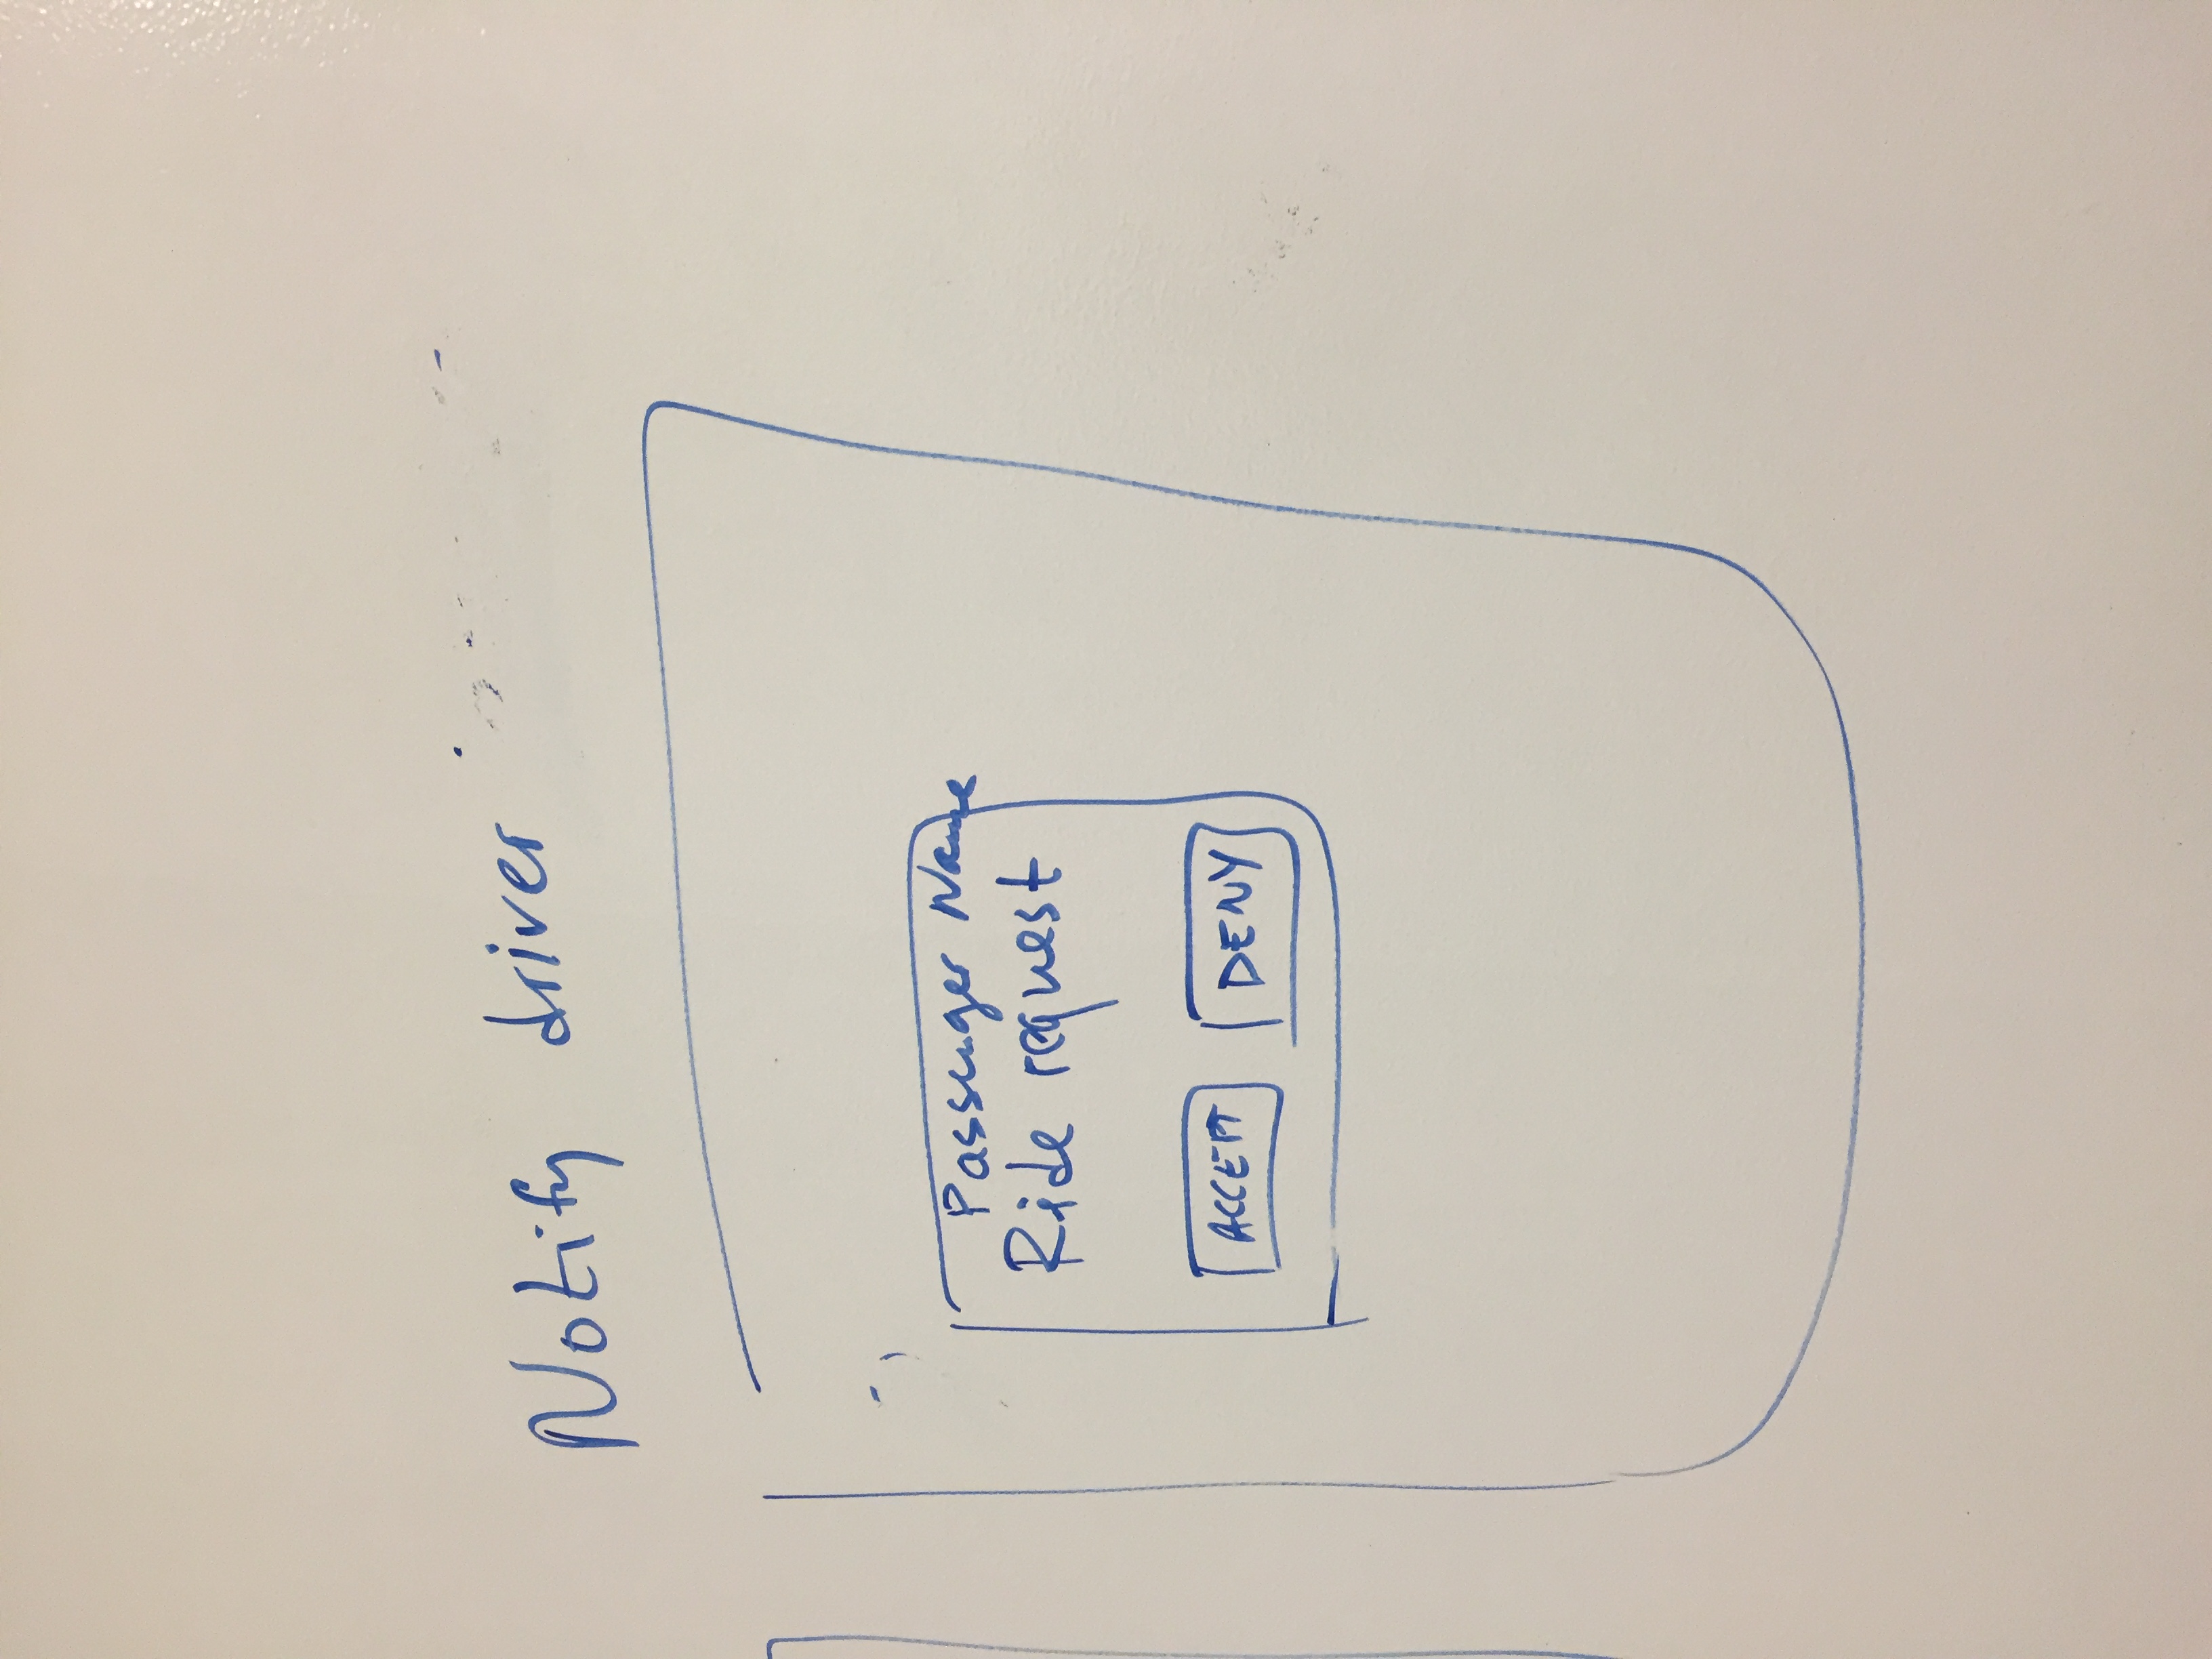 Notify driver
Passenger Name
Ride request
ACCEPT
DENY